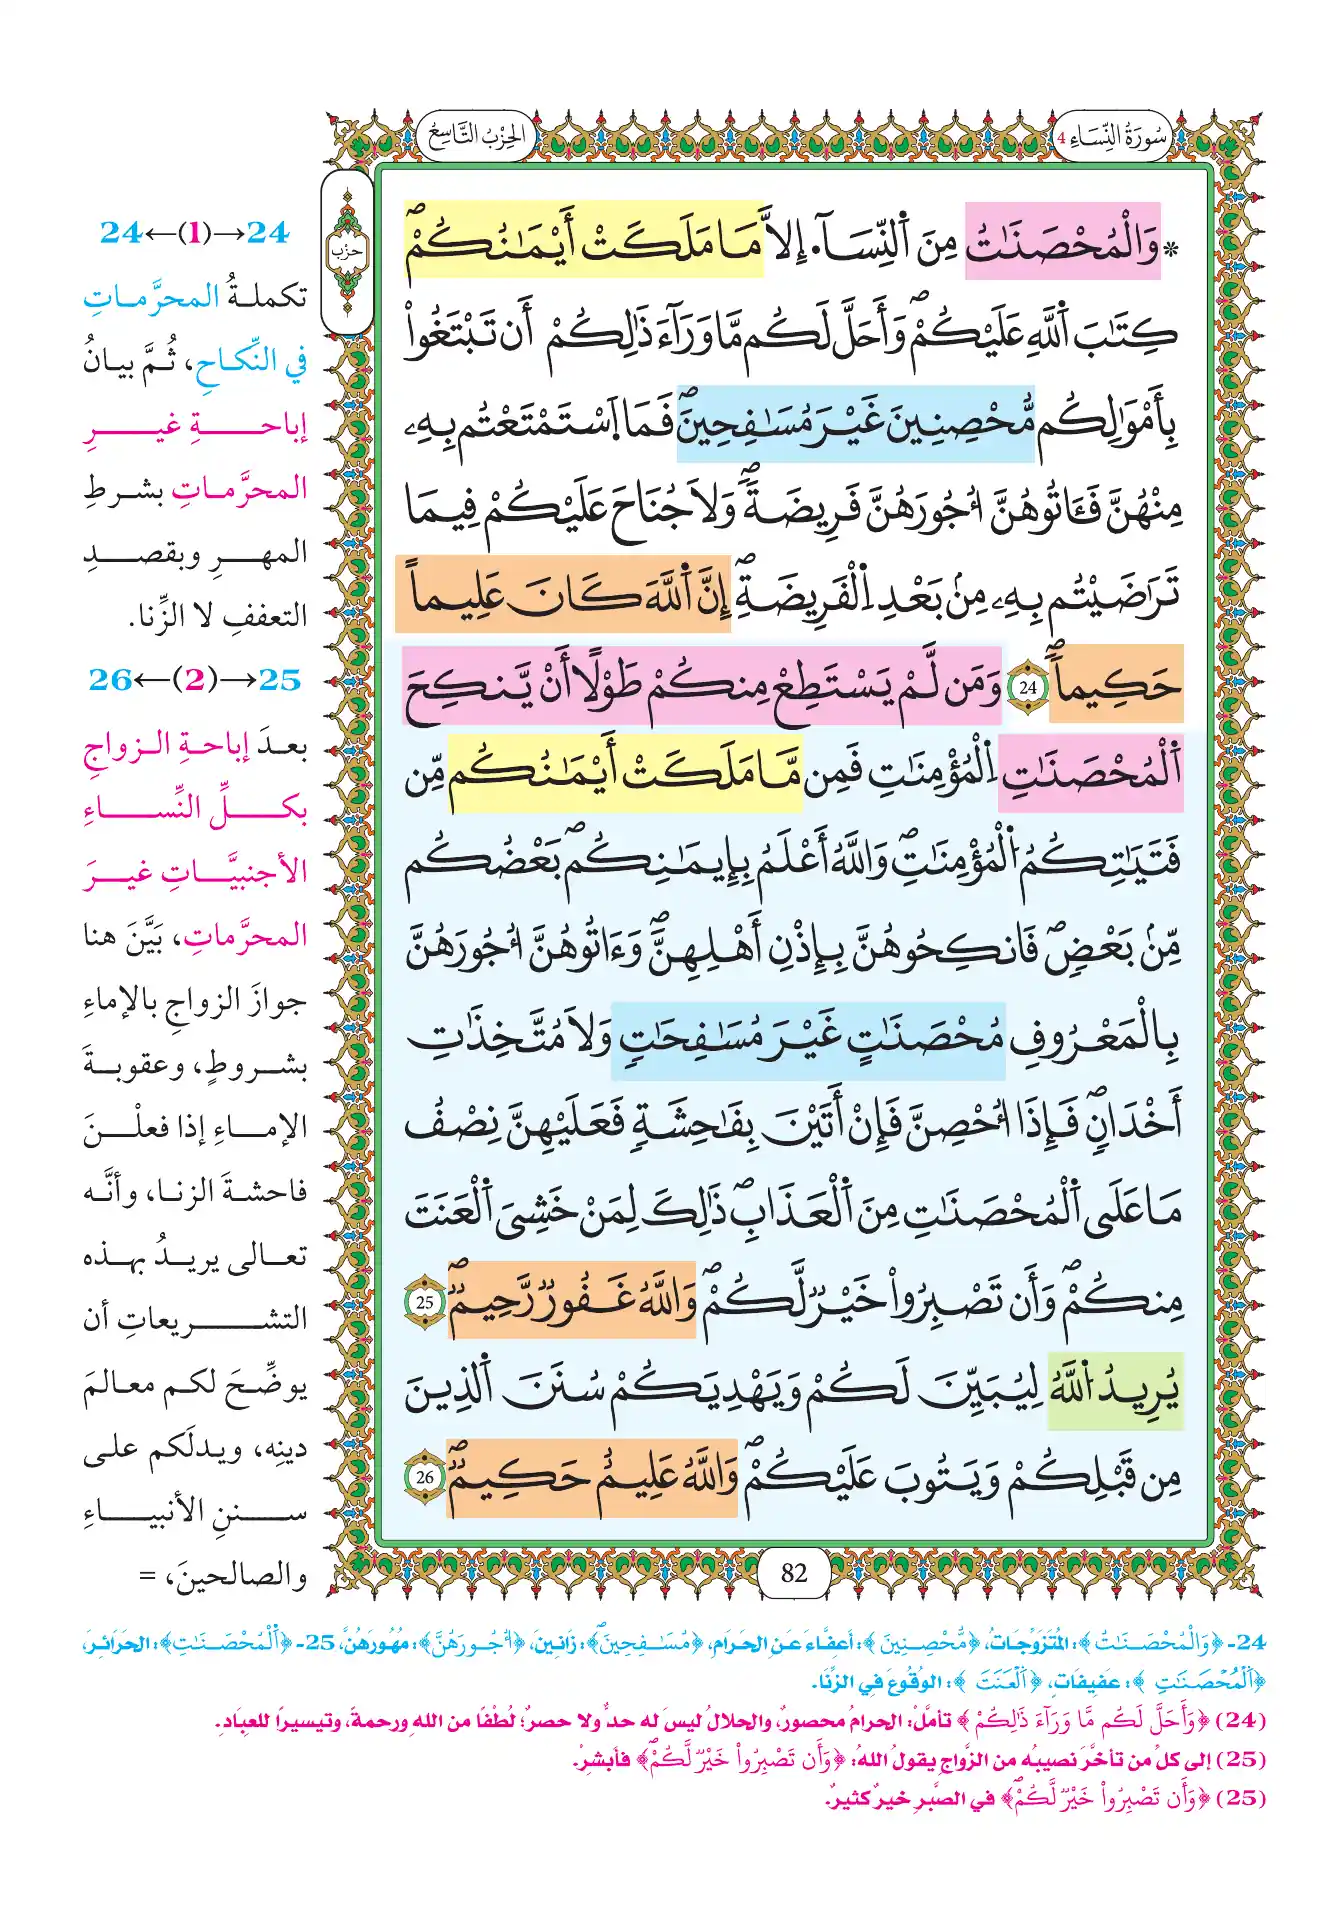 سُورَةُ النِّسَاءِ 4
الحِزْبُ التَّاسِعُ
حزب
* وَالْمُحْصَنَٰتُ مِنَ اَ۬لنِّسَآءِ اِلَّا مَا مَلَكَتْ أَيْمَٰنُكُمْۖ
كِتَٰبَ اَ۬للَّهِ عَلَيْكُمْۖ وَأَحَلَّ لَكُم مَّا وَرَآءَ ذَٰلِكُمْ أَن تَبْتَغُواْ
بِأَمْوَٰلِكُم مُّحْصِنِينَ غَيْرَ مُسَٰفِحِينَۖ فَمَا اَ۪سْتَمْتَعْتُم بِهِۦ
مِنْهُنَّ فَـَٔاتُوهُنَّ أُجُورَهُنَّ فَرِيضَةٗۖ وَلَا جُنَاحَ عَلَيْكُمْ فِيمَا
تَرَٰضَيْتُم بِهِۦ مِنۢ بَعْدِ اِ۬لْفَرِيضَةِۖ إِنَّ اَ۬للَّهَ كَانَ عَلِيماً
حَكِيماٗۖ 24 وَمَن لَّمْ يَسْتَطِعْ مِنكُمْ طَوْلًا أَنْ يَّنكِحَ
اَ۬لْمُحْصَنَٰتِ اِ۬لْمُؤْمِنَٰتِ فَمِن مَّا مَلَكَتْ أَيْمَٰنُكُم مِّن
فَتَيَٰتِكُمُ اُ۬لْمُؤْمِنَٰتِۖ وَاللَّهُ أَعْلَمُ بِإِيمَٰنِكُمۖ بَعْضُكُم
مِّنۢ بَعْضٖۖ فَانكِحُوهُنَّ بِإِذْنِ أَهْلِهِنَّۖ وَءَاتُوهُنَّ أُجُورَهُنَّ
بِالْمَعْرُوفِ مُحْصَنَٰتٍ غَيْرَ مُسَٰفِحَٰتٖ وَلَا مُتَّخِذَٰتِ
أَخْدَانٖۖ فَإِذَا أُحْصِنَّ فَإِنْ أَتَيْنَ بِفَٰحِشَةٖ فَعَلَيْهِنَّ نِصْفُ
مَا عَلَى اَ۬لْمُحْصَنَٰتِ مِنَ اَ۬لْعَذَابِۖ ذَٰلِكَ لِمَنْ خَشِيَ اَ۬لْعَنَتَ
مِنكُمْۖ وَأَن تَصْبِرُواْ خَيْرٞ لَّكُمْۖ وَاللَّهُ غَفُورٞ رَّحِيمٞۖ 25
يُرِيدُ اُ۬للَّهُ لِيُبَيِّنَ لَكُمْ وَيَهْدِيَكُمْ سُنَنَ اَ۬لذِينَ
مِن قَبْلِكُمْ وَيَتُوبَ عَلَيْكُمْۖ وَاللَّهُ عَلِيمٌ حَكِيمٞۖ 26
82
24←(1)→24
تكملةُ المحرَّماتِ
في النِّكاحِ، ثُمَّ بيانُ
إباحةِ غيرِ
المحرَّماتِ بشرطِ
المهرِ وبقصدِ
التعففِ لا الزِّنا.
26←(2)→25
بعدَ إباحةِ الزواجِ
بكلِّ النِّساءِ
الأجنبيَّاتِ غيرَ
المحرَّماتِ، بَيَّنَ هنا
جوازَ الزواجِ بالإماءِ
بشروطٍ، وعقوبةَ
الإماءِ إذا فعلْنَ
فاحشةَ الزنا، وأنَّه
تعالى يريدُ بهذه
التشريعاتِ أن
يوضِّحَ لكم معالمَ
دينِه، ويدلَكم على
سننِ الأنبياءِ
والصالحينَ، =
24- ﴿وَالْمُحْصَنَٰتُ﴾: المُتَزَوِّجَاتُ، ﴿مُّحْصِنِينَ﴾: أعفَّاءَ عَنِ الحَرَامِ، ﴿مُسَٰفِحِينَۖ﴾: زَانِينَ، ﴿أُجُورَهُنَّ﴾: مُهُورَهُنَّ، 25- ﴿اَ۬لْمُحْصَنَٰتِ﴾: الحَرَائِرَ،
﴿اَ۬لْمُحْصَنَٰتِ﴾: عَفِيفَاتٍ، ﴿اَ۬لْعَنَتَ﴾: الوُقُوعَ فِي الزِّنَا.
(24) ﴿وَأَحَلَّ لَكُم مَّا وَرَآءَ ذَٰلِكُمْ﴾ تأمَّلْ: الحرامُ محصورٌ، والحلالُ ليسَ له حدٌّ ولا حصرٌ؛ لُطفًا من اللهِ ورحمةً، وتيسيرًا للعبادِ.
(25) إلى كلِّ من تأخَّرَ نصيبُه من الزَّواجِ يقولُ اللهُ: ﴿وَأَن تَصْبِرُواْ خَيْرٞ لَّكُمْۖ﴾ فأبشرْ.
(25) ﴿وَأَن تَصْبِرُواْ خَيْرٞ لَّكُمْۖ﴾ في الصَّبرِ خيرٌ كثيرٌ.